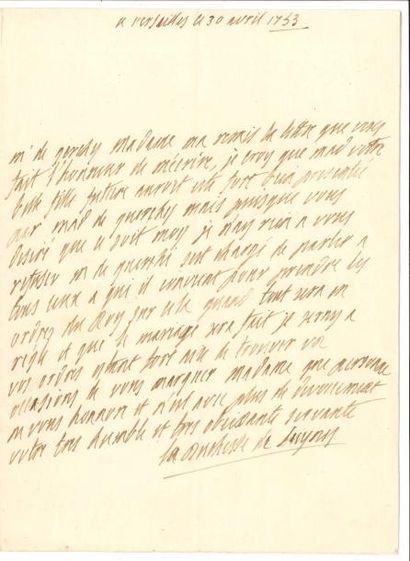 a versailles le 30 avril 1753
mr de guerchy madame ma remis la lettre que vous
fait l'honneur de mécrire, je croy que mad votre
belle fille future auroit eté fort bien presentée
par mad de guerchy mais puisque vous
desiré que ce soit moy je n'ay rien a vous
refuser mr de guerchi sest chargé de parler a
tous ceux a qui il convient pour prendre les
ordres du Roy sur cela quand tout sera en
regle et que le mariage sera fait je seray a
vos ordres estant fort aise de trouver une
occasion de vous marquer madame que personne
ne vous honnore et n'est avec plus de devouement
votre tres humble et tres obeissante servante
la duchesse de Luynes